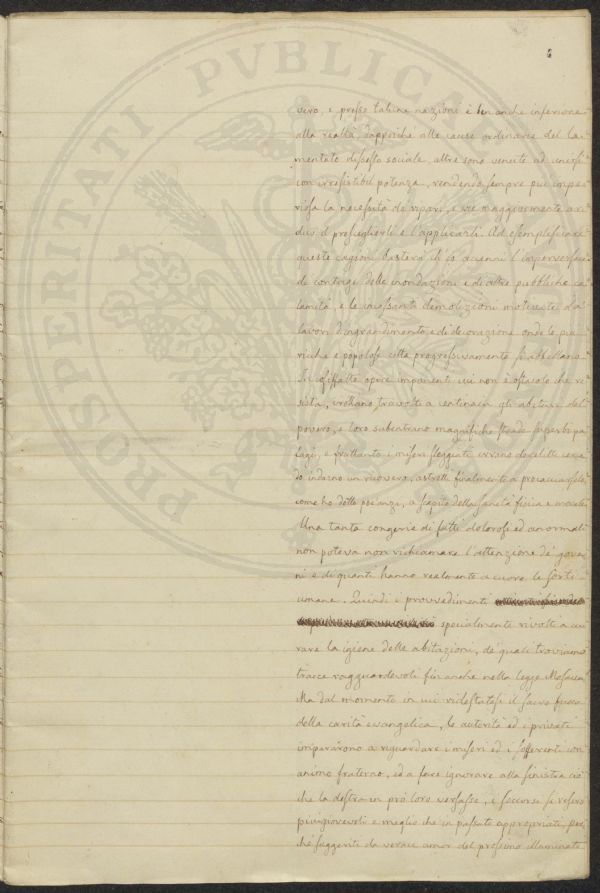 PROSPERITATI PVBLICAE
6
vero, e presso talune nazioni è benanche inferiore
alla realtà, dappoiché alle cause ordinarie del la-
mentato dissesto sociale, altre sono venute ad unirsi
con irresistibil potenza, rendendo sempre più impe-
riosa la necessità de' ripari, e vie maggiormente ar-
duo il prescegliersi e l'applicarli. Ad esemplificare
queste cagioni basterà ch'io accenni l'imperversare
di contagi, delle inondazioni e di altre pubbliche ca-
lamità, e le incessanti demolizioni motivate da'
lavori d'ingrandimento, e di decorazione onde le più
ricche e popolose città progressivamente si abbellano.
In siffatte opere imponenti cui non è ostacolo che re-
sista, crollano, travolti a centinaia gli abituri del
povero, e loro subentrano magnifiche strade superbi pa-
lagi, e frattanto i miseri sloggiati errano derelitti cercan-
do indarno un ricovero, astretti finalmente a procacciarselo
come ho detto poc'anzi, a scapito della sanità fisica e morale.
Una tanta congerie di fatti dolorosi ed anormali
non poteva non richiamare l'attenzione de' gover-
ni e di quanti hanno realmente a cuore le sorti
umane. Quindi i provvedimenti
specialmente rivolti a cu-
rare la igiene delle abitazioni, de' quali troviamo
tracce ragguardevoli fin anche nella legge Mosaica.
Ma dal momento in cui ridestatosi il sacro fuoco
della carità evangelica, le autorità ed i privati
impararono a riguardare i miseri ed i sofferenti con
animo fraterno, ed a fare ignorare alla sinistra ciò
che la destra in prò loro versasse, i soccorsi si resero
più giovevoli e meglio che in passato appropriati, per-
ché suggeriti da verace amor del prossimo illuminato